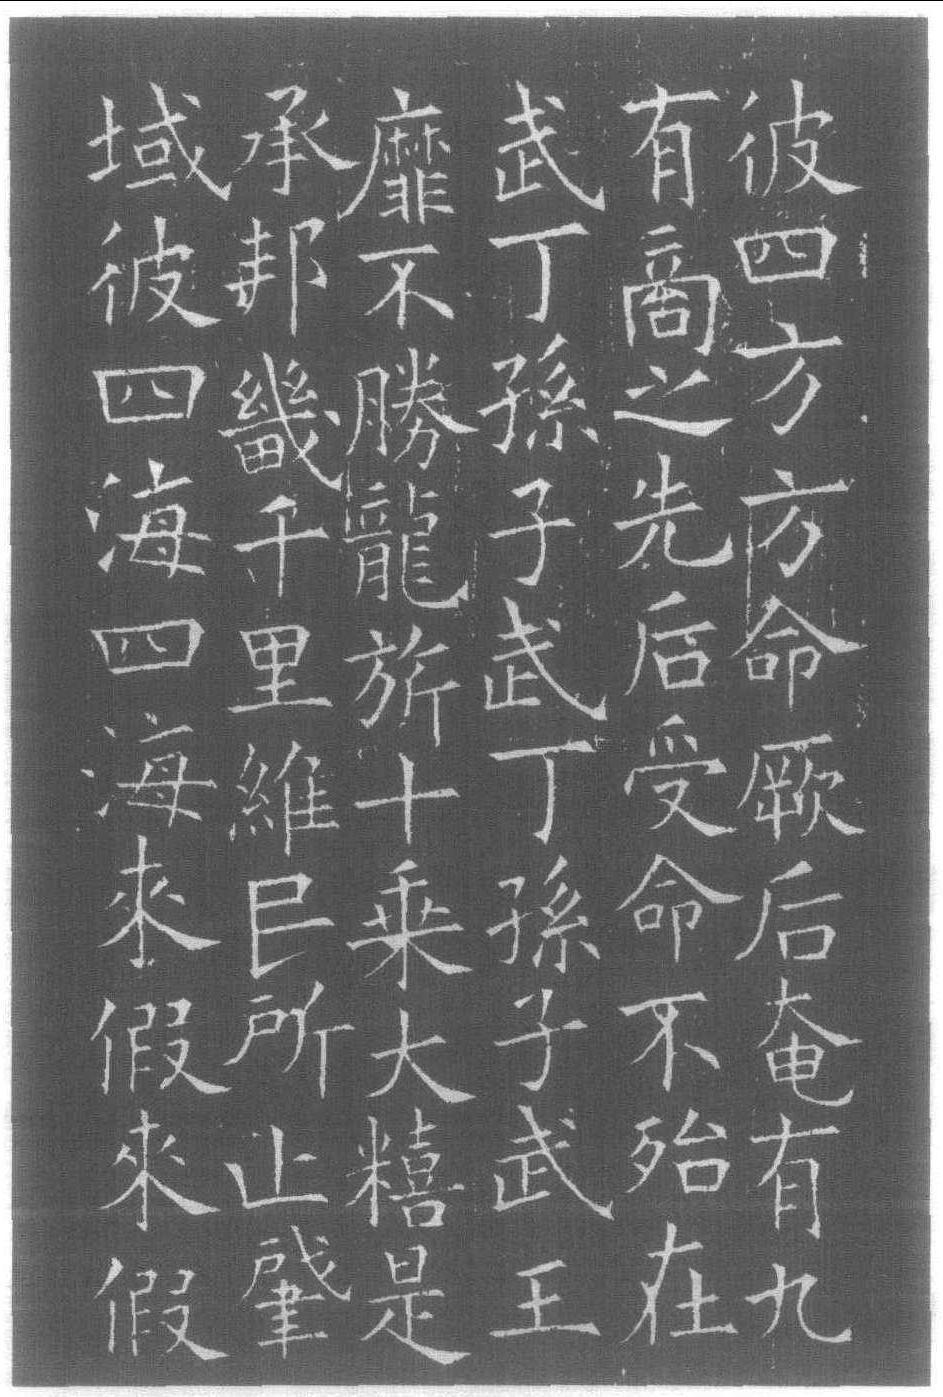 彼四方方命厥后奄有九
有商之先后受命不殆在
武丁孫子武丁孫子武王
靡不勝龍旂十乘大糦是
承邦畿千里維民所止肇
域彼四海四海來假來假